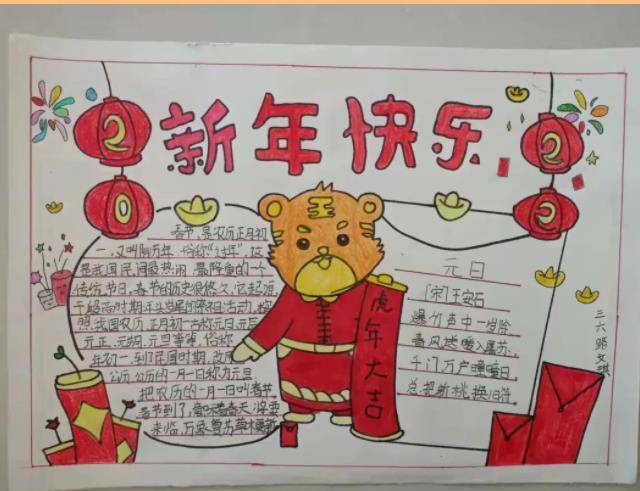 新年快乐
2
0
2
2
王
虎年大吉
春节,是农历正月初
一,又叫阴历年,俗称"过年",这
是我国民间最热闹、最隆重的一个
传统节日。春节的历史很悠久,它起源
于殷商时期年头岁尾的祭祖活动。按
照我国农历,正月初一古称元日、元辰
元正、元朔、元旦等等,俗称
年初一,到了民国时期,改用
公历,公历的一月一日称为元旦
把农历的一月一日叫春节
春节到了,意味着春天将要
来临,万象复苏草木更新
元日
[宋]王安石
爆竹声中一岁除
春风送暖入屠苏.
千门万户曈曈日
总把新桃换旧符.
三六